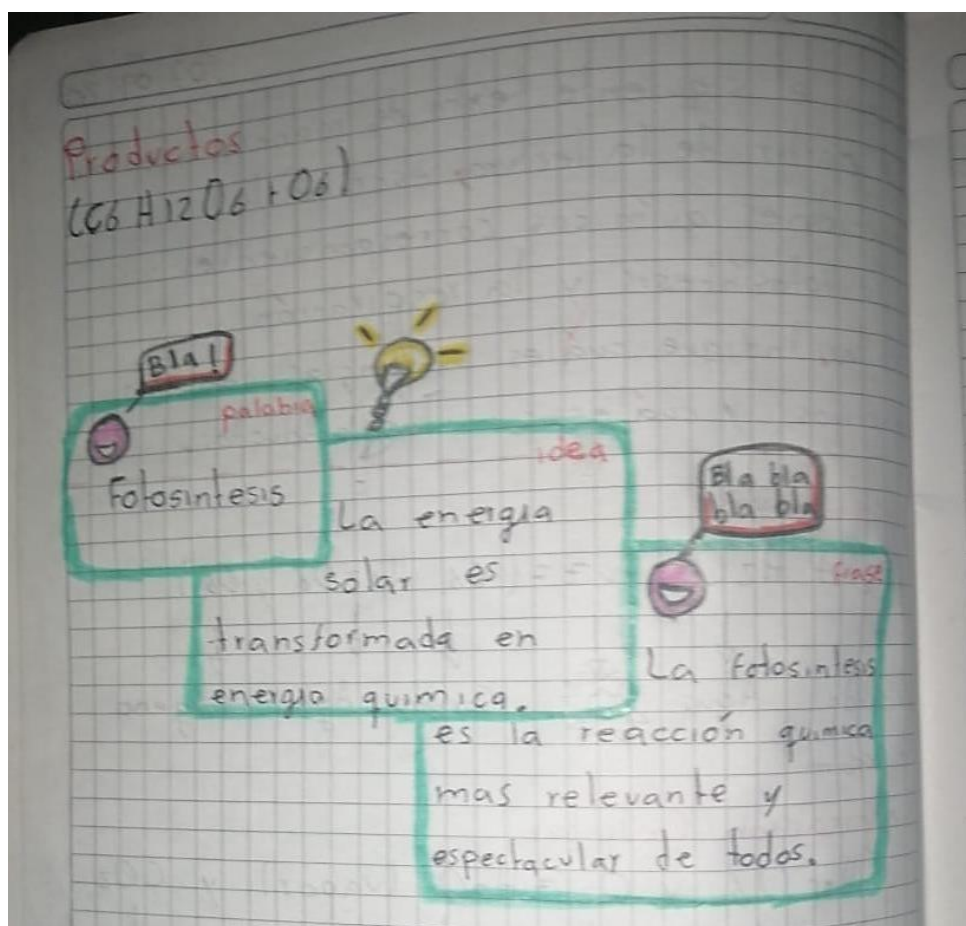 Productos
(C6 H12 O6 + O6)
Bla!
palabra
Fotosintesis
idea
La energia
solar es
transformada en
energia quimica.
Bla bla
bla bla
frase
La fotosintesis
es la reacción quimica
mas relevante y
espectacular de todos.